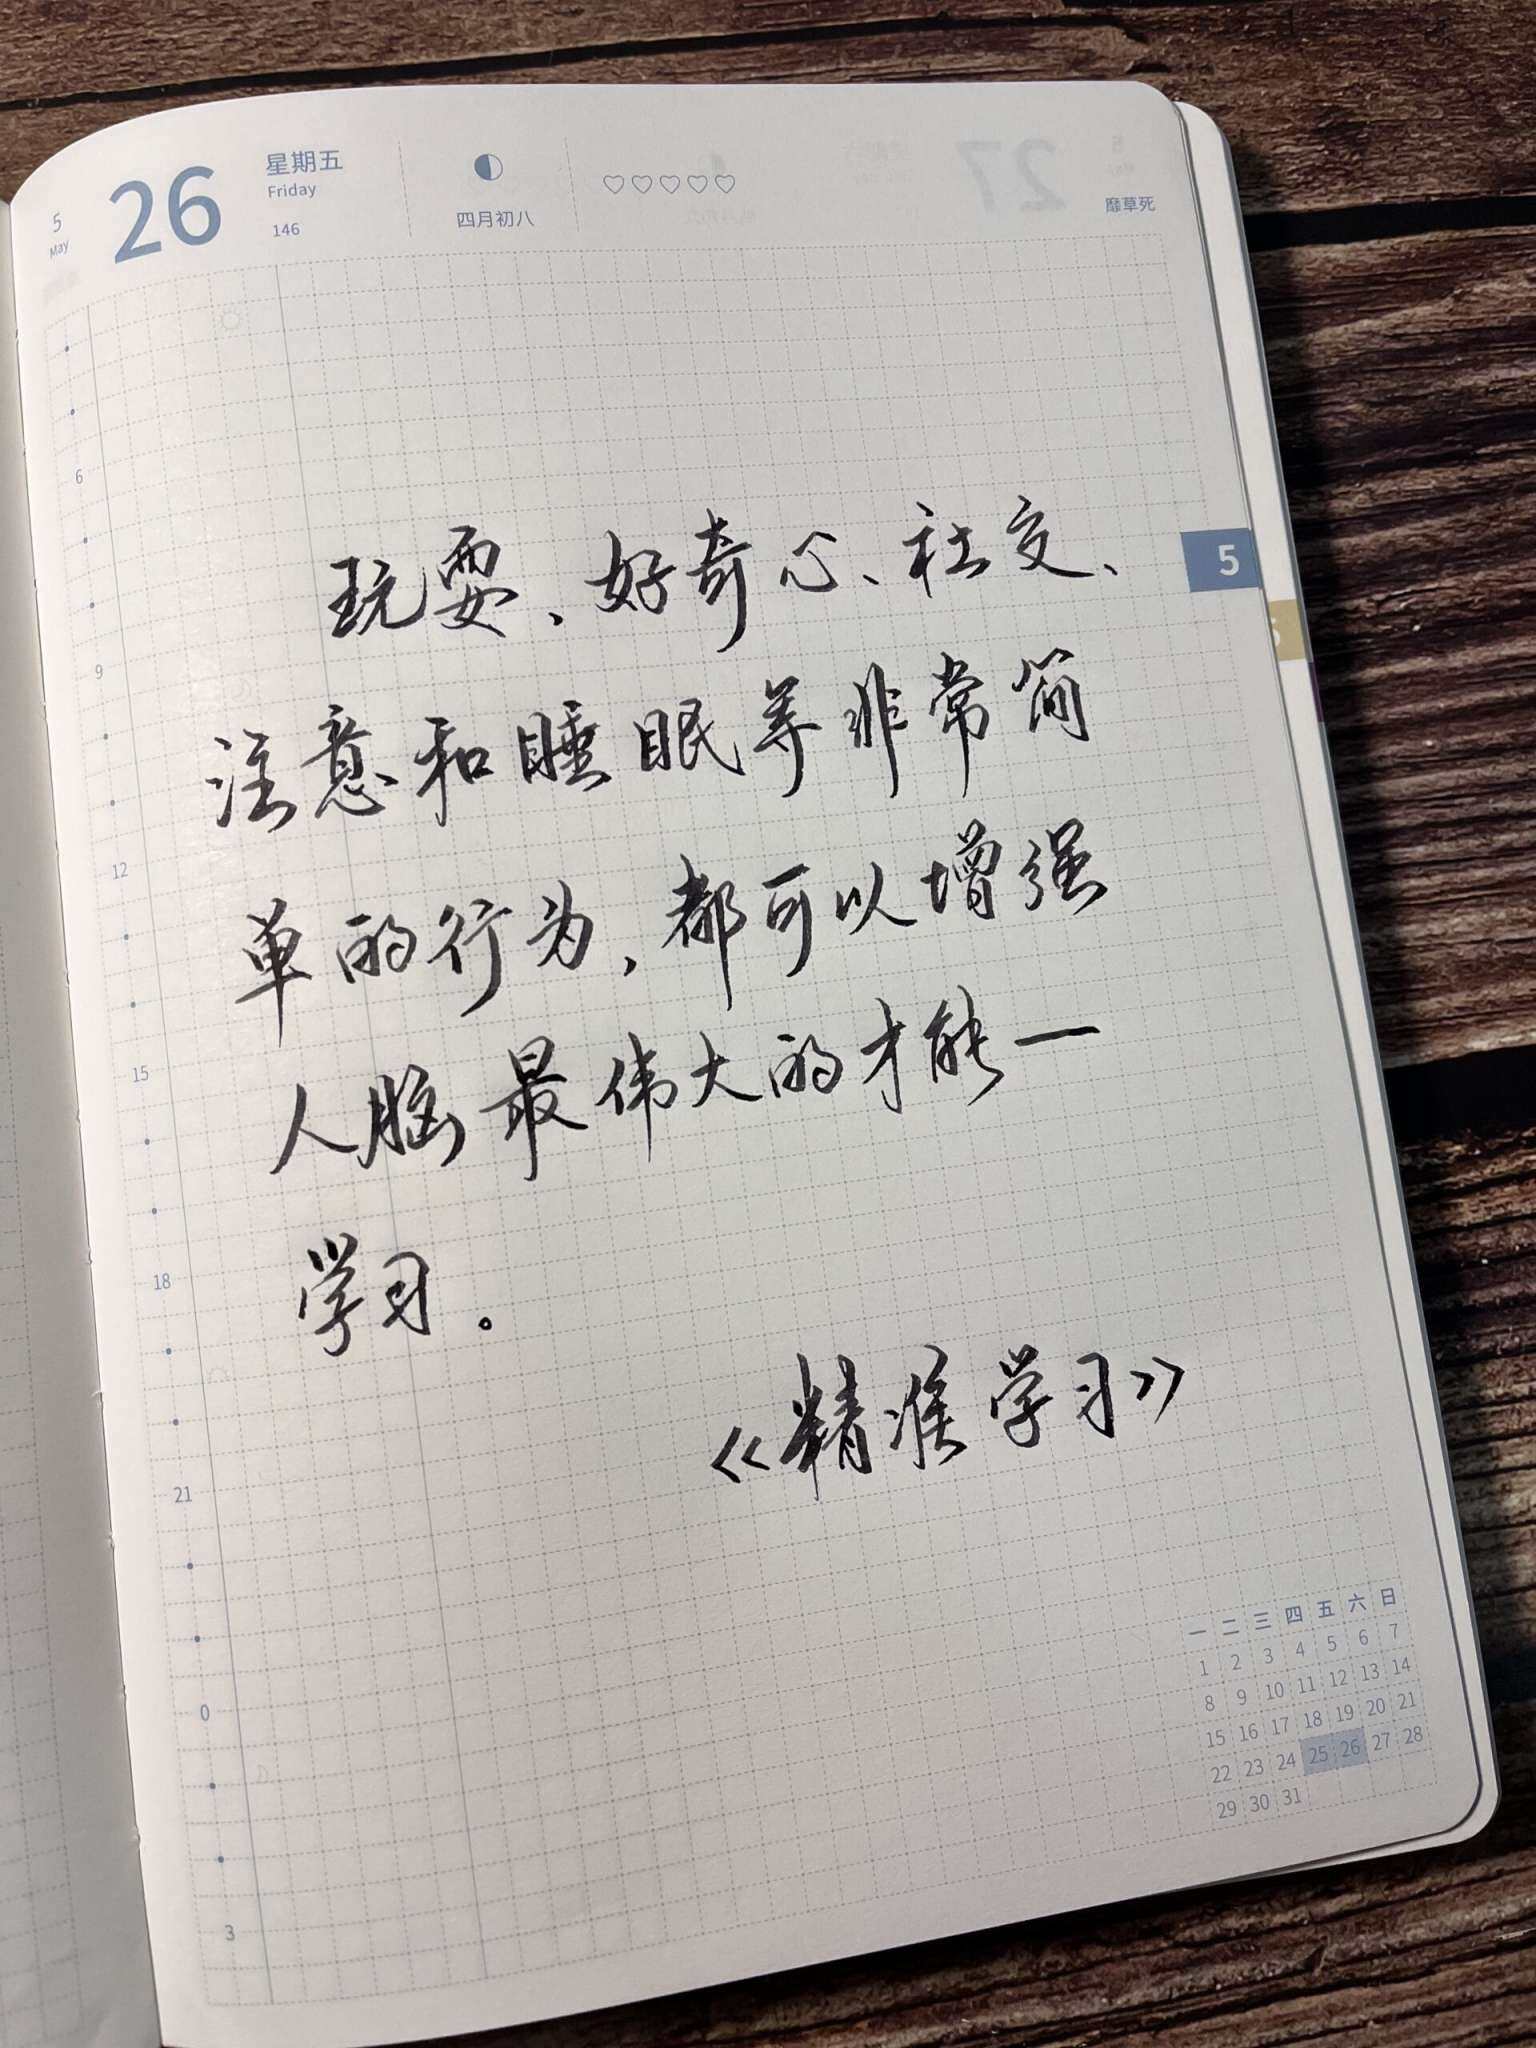 5
May
26
星期五
Friday
146
四月初八
27
靡草死
5
玩耍、好奇心、社交、
注意和睡眠等非常简
单的行为，都可以增强
人脑最伟大的才能一
学习。
《精准学习》
6
9
12
15
18
21
0
3
一 二 三 四 五 六 日
1 2 3 4 5 6 7
8 9 10 11 12 13 14
15 16 17 18 19 20 21
22 23 24 25 26 27 28
29 30 31